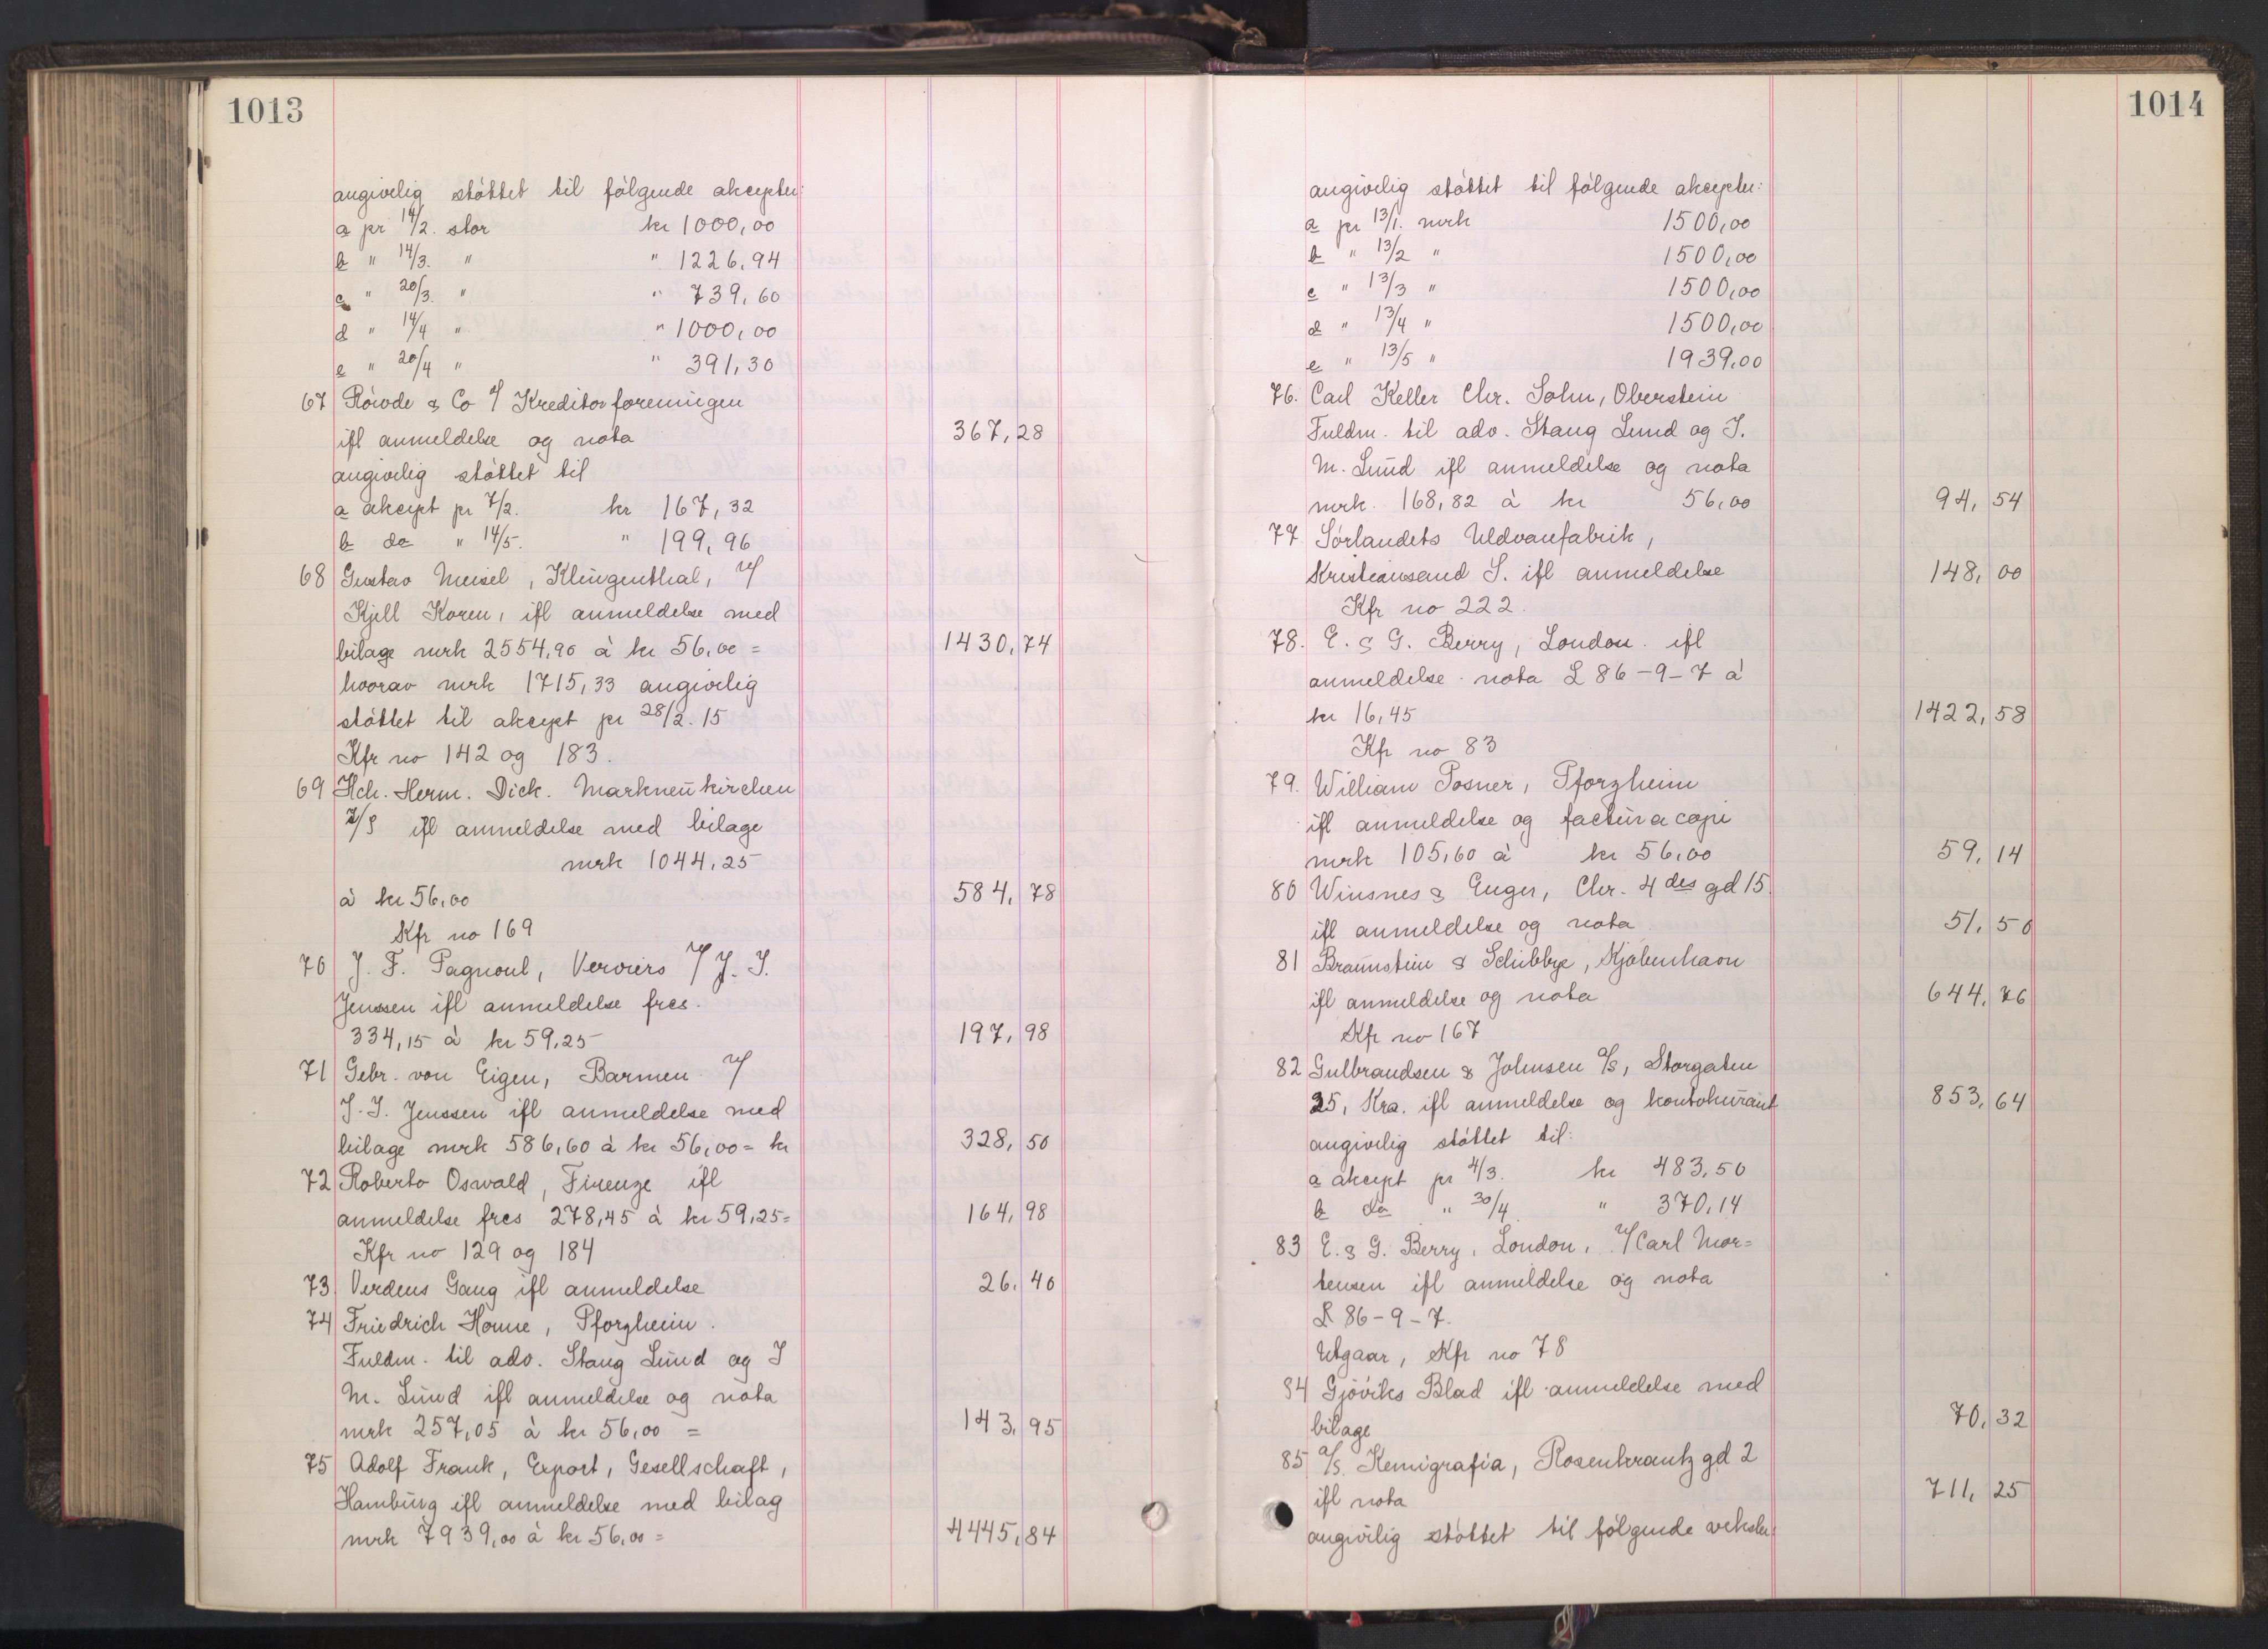 1013
angivelig støttet til følgende aksepter:
a pr 14/2. stor kr 1000,00
b " 14/3. " " 1226,94
c " 20/3. " " 739,60
d " 14/4 " " 1000,00
e " 20/4 " " 391,30
67 Röwde & Co v/ Kreditorforeningen
ifl anmeldelse og nota 367,28
angivelig støttet til
a aksept pr 7/2. kr 167,32
b do " 14/5. " 199,96
68 Gustav Meisel, Klingenthal, v/
Kjell Koren, ifl anmeldelse med
bilage mrk 2554,90 à kr 56,00 = 1430,74
hvorav mrk 1715,33 angivelig
støttet til aksept pr 28/2. 15
Kfr no 142 og 183.
69 Hch. Herm. Dick. Markneukirchen
i/S ifl anmeldelse med bilage
mrk 1044,25
à kr 56,00 584,78
Kfr no 169
70 J. F. Pagnoul, Verviers v/ J. S.
Jenssen ifl anmeldelse frcs.
334,15 à kr 59,25 197,98
71 Gebr. von Eigen, Barmen v/
J. S. Jenssen ifl anmeldelse med
bilage mrk 586,60 à kr 56,00 = kr 328,50
72 Roberto Oswald, Firenze ifl
anmeldelse frcs 278,45 à kr 59,25 = 164,98
Kfr no 129 og 184
73. Verdens Gang ifl anmeldelse 26,40
74 Friedrich Honne, Pforzheim.
Fuldm. til adv. Stang Lund og J
M. Lund ifl anmeldelse og nota
mrk 257,05 à kr 56,00 = 143,95
75 Adolf Frank, Export, Gesellschaft,
Hamburg ifl anmeldelse med bilag
mrk 7939,00 à kr 56,00 = 4445,84
1014
angivelig støttet til følgende aksepter:
a pr 13/1. mrk 1500,00
b " 13/2 " 1500,00
c " 13/3 " 1500,00
d " 13/4 " 1500,00
e " 13/5 " 1939,00
76. Carl Keller Chr. Sohn, Oberstein
Fuldm. til adv. Stang Lund og J.
M. Lund ifl anmeldelse og nota
mrk. 168,82 à kr 56,00 94,54
77 Sørlandets Uldvarefabrik,
Kristiansand S. ifl anmeldelse 148,00
Kfr no 222.
78. E. & G. Berry, London. ifl
anmeldelse. nota £ 86-9-7 à
kr 16,45 1422,58
Kfr no 83
79. William Posner, Pforzheim
ifl anmeldelse og facturacopi
mrk 105,60 à kr 56,00 59,14
80 Winsnes & Enger, Chr. 4 des gd 15.
ifl anmeldelse og nota 51,50
81 Braunstein & Schibbye, Kjøbenhavn
ifl anmeldelse og nota 644,76
Kfr no 167
82 Gulbrandsen & Johnsen a/s, Storgaten
35, Kra. ifl anmeldelse og kontokurant 853,64
angivelig støttet til:
a aksept pr 4/3. kr 483,50
b do " 30/4. " 370,14
83 E. & G. Berry, London, v/ Carl Mor=
tensen ifl anmeldelse og nota
£ 86-9-7.
Utgaar, Kfr no 78
84 Gjøviks Blad ifl anmeldelse med
bilage 70,32
85 a/s. Kemigrafia, Rosenkrantz gd 2
ifl nota 711,25
angivelig støttet til følgende veksler: